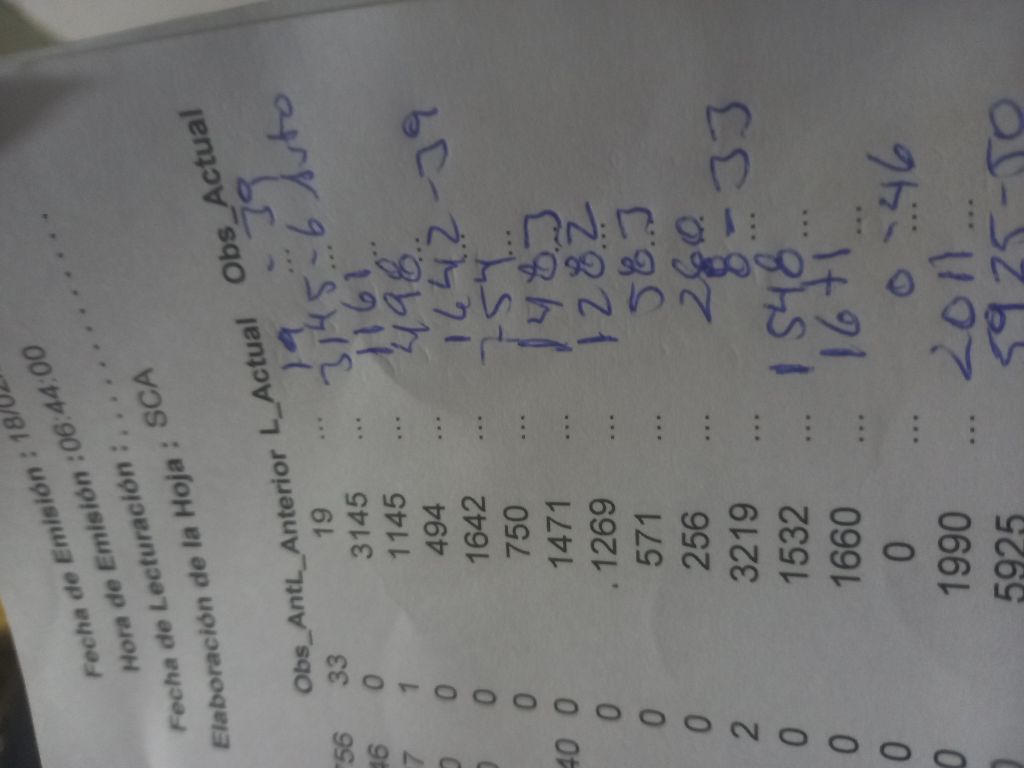 Fecha de Emisión : 18/02
Hora de Emisión : 06:44:00
Fecha de Lecturación : . . . . . . . . . . . .
Elaboración de la Hoja : SCA
Obs_AntL_Anterior L_Actual Obs_Actual
756 33 19 ... 19 - 39
46 0 3145 ... 3145 - 6
7 1 1145 ... 1161 ...
0 0 494 ... 498 ...
0 0 1642 ... 1642 - 39
0 750 ... 754 ...
40 0 1471 ... 1483 ...
0 1269 ... 1282 ...
0 571 ... 583 ...
0 256 ... ...
2 3219 ... 8 - 33
0 1532 ... 1548 ...
0 1660 ... 1671 ...
0 0 ... 0 - 46
0 1990 ... 2011 ...
5925 5925 - 50